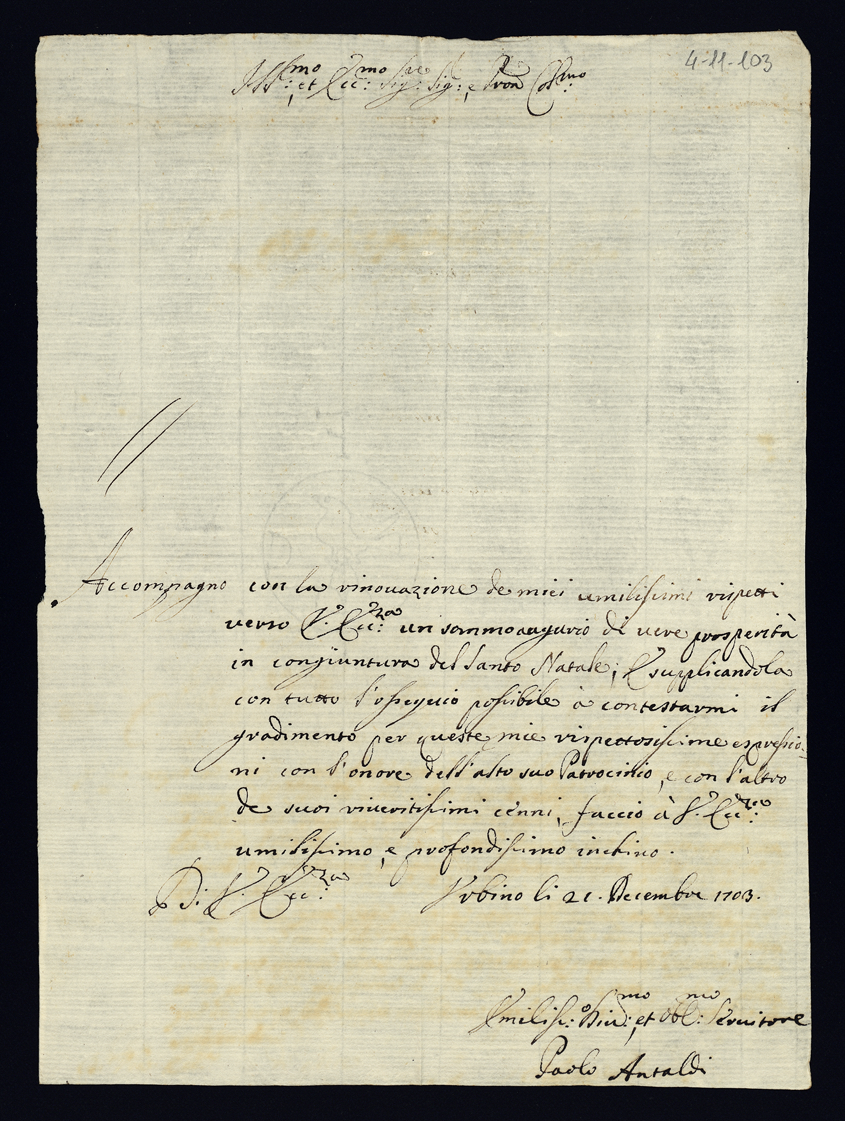 4-11-103
Ill.mo et Ecc.mo Sig.re Sig.re, e Pron Col.mo
Accompagno con la rinouazione de miei umilissimi rispetti
verso V. Ecc.za un sommo augurio di vere prosperità
in congiuntura del Santo Natale; E supplicandola
con tutto l'ossequio possibile à contestarmi il
gradimento per queste mie rispettosissime espressio-
ni con l'onore dell'alto suo Patrocinio, e con l'altro
de suoi riveritissimi cenni, faccio à V. Ecc.za
umilissimo, e profondissimo inchino.
Di V. Ecc.za Urbino li 21. Decembre 1703.
Umiliss: Div.mo, et Obl.mo Servitore
Paolo Antaldi